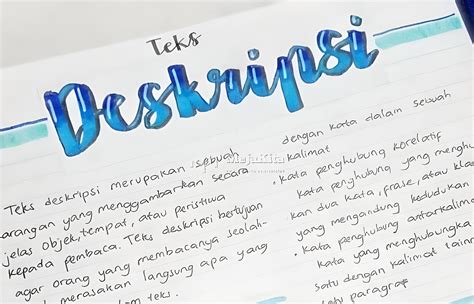 Teks
Deskripsi
Teks deskripsi merupakan sebuah
arangan yang menggambarkan secara
jelas objek, tempat, atau peristiwa
kepada pembaca. Teks deskripsi bertujuan
agar orang yang membacanya seolah-
merasakan langsung apa yang
dalam teks.
dengan kata dalam sebuah
kalimat
. Kata penghubung korelatif
kata penghubung yang menghu
kan dua kata, frase, atau kla
yang mengandung kedudukan
. Kata penghubung antarkalima
kata yang menghubungka
satu dengan kalimat lain
paragraf
MejaKita